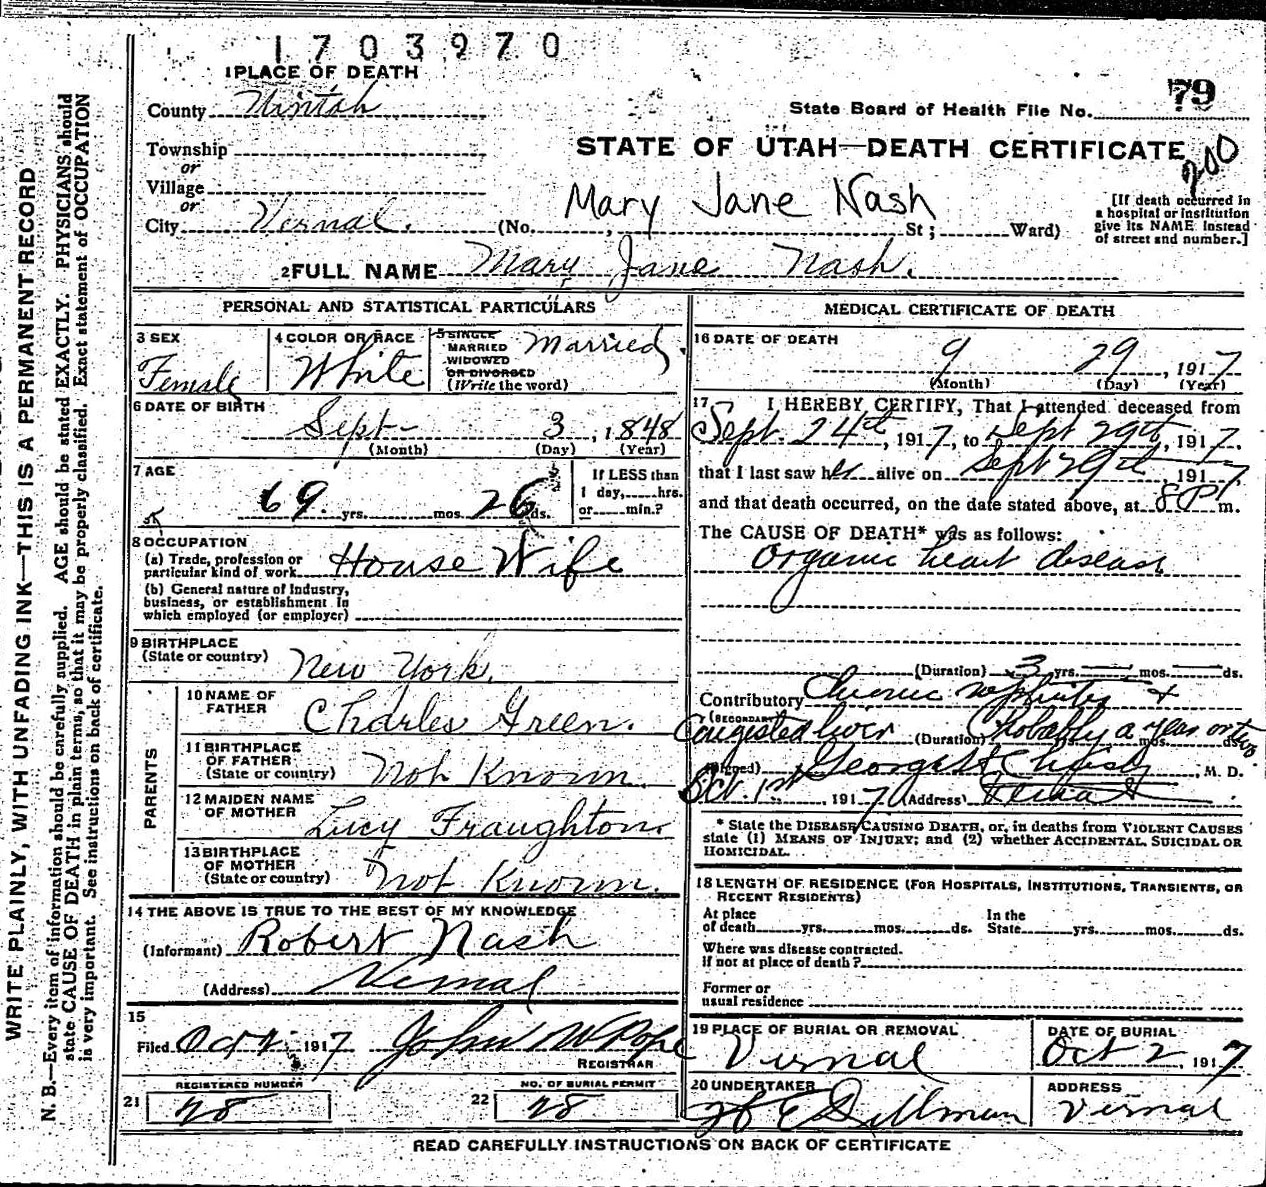 1703970
1 PLACE OF DEATH
County Uintah
79
State Board of Health File No.
Township
or
STATE OF UTAH—DEATH CERTIFICATE
200
Village
or
Mary Jane Nash
[If death occurred in
a hospital or institution
give its NAME instead
of street and number.]
City Vernal. (No. , St; Ward)
2 FULL NAME Mary Jane Nash.
PERSONAL AND STATISTICAL PARTICULARS
3 SEX
Female
4 COLOR OR RACE
White
5 SINGLE
MARRIED
WIDOWED
OR DIVORCED
(Write the word)
Married.
6 DATE OF BIRTH
Sept- 3, 1848
(Month) (Day) (Year)
7 AGE
69. yrs. mos. 26 ds.
If LESS than
1 day, hrs.
or min.?
8 OCCUPATION
(a) Trade, profession or
particular kind of work House Wife
(b) General nature of industry,
business, or establishment in
which employed (or employer)
9 BIRTHPLACE
(State or country) New York.
PARENTS
10 NAME OF
FATHER Charles Green.
11 BIRTHPLACE
OF FATHER
(State or country) Not Known.
12 MAIDEN NAME
OF MOTHER Lucy Fraughton.
13 BIRTHPLACE
OF MOTHER
(State or country) Not Known.
14 THE ABOVE IS TRUE TO THE BEST OF MY KNOWLEDGE
(Informant) Robert Nash
(Address) Vernal
15
Filed Oct 1917 John W Pope
REGISTRAR
REGISTERED NUMBER
21 28
NO. OF BURIAL PERMIT
22 28
MEDICAL CERTIFICATE OF DEATH
16 DATE OF DEATH
9 29, 1917
(Month) (Day) (Year)
17 I HEREBY CERTIFY, That I attended deceased from
Sept. 24th, 1917, to Sept 29th, 1917.
that I last saw her alive on Sept 29th 1917
and that death occurred, on the date stated above, at 8 P m.
The CAUSE OF DEATH* was as follows:
Organic heart disease
(Duration) 3 yrs. mos. ds.
Contributory Chronic nephritis +
(SECONDARY)
Congested liver (Duration) Probably a year or two mos. ds.
(Signed) M. D.
Oct. 1st, 1917 (Address) Vernal
* State the DISEASE CAUSING DEATH, or, in deaths from VIOLENT CAUSES
state (1) MEANS OF INJURY; and (2) whether ACCIDENTAL, SUICIDAL OR
HOMICIDAL.
18 LENGTH OF RESIDENCE (FOR HOSPITALS, INSTITUTIONS, TRANSIENTS, OR
RECENT RESIDENTS)
At place
of death yrs. mos. ds.
In the
State yrs. mos. ds.
Where was disease contracted.
if not at place of death?
Former or
usual residence
19 PLACE OF BURIAL OR REMOVAL
Vernal
DATE OF BURIAL
Oct 2, 1917
20 UNDERTAKER
Dillman
ADDRESS
Vernal
READ CAREFULLY INSTRUCTIONS ON BACK OF CERTIFICATE
WRITE PLAINLY, WITH UNFADING INK—THIS IS A PERMANENT RECORD
N. B.—Every item of information should be carefully supplied. AGE should be stated EXACTLY. PHYSICIANS should
state CAUSE OF DEATH in plain terms, so that it may be properly classified. Exact statement of OCCUPATION
is very important. See instructions on back of certificate.